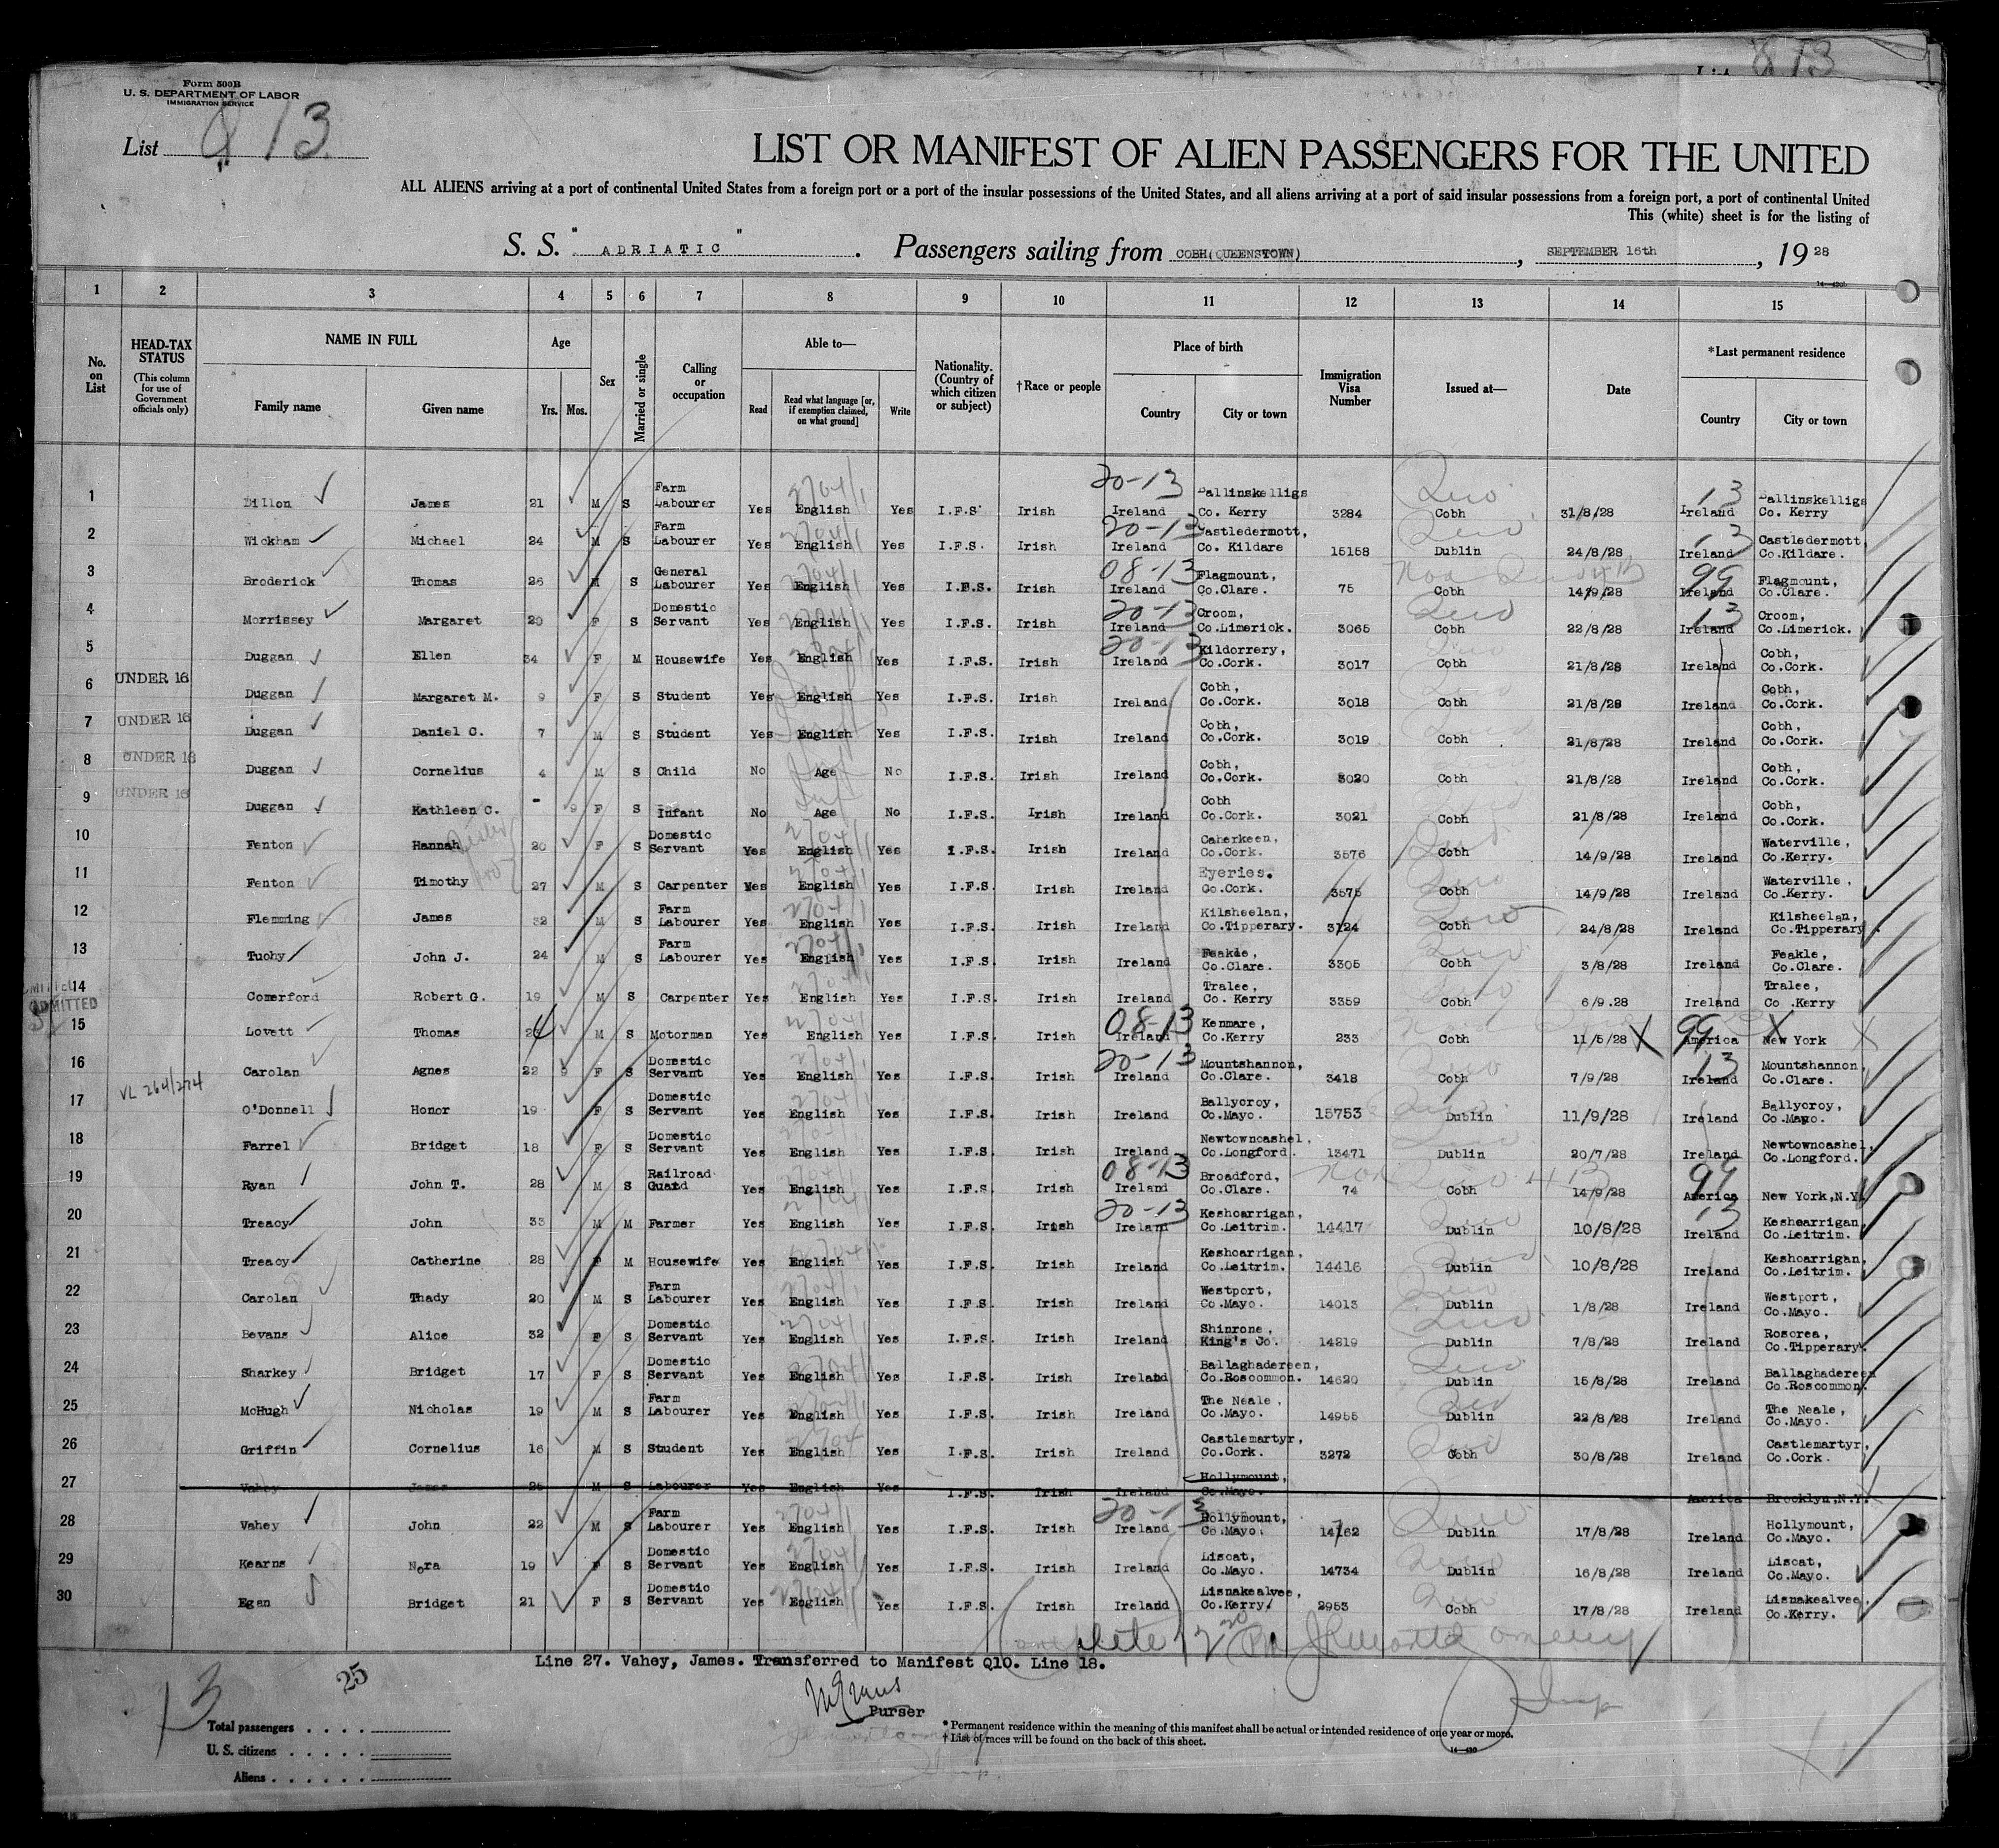 Form 500B
U. S. DEPARTMENT OF LABOR
IMMIGRATION SERVICE
List 13
List 13
LIST OR MANIFEST OF ALIEN PASSENGERS FOR THE UNITED
ALL ALIENS arriving at a port of continental United States from a foreign port or a port of the insular possessions of the United States, and all aliens arriving at a port of said insular possessions from a foreign port, a port of continental United
This (white) sheet is for the listing of
S. S. "ADRIATIC". Passengers sailing from COBH(QUEENSTOWN), SEPTEMBER 16th, 1928
1 2 3 4 5 6 7 8 9 10 11 12 13 14 15
No. on List
HEAD-TAX STATUS (This column for use of Government officials only)
NAME IN FULL Family name Given name
Age Yrs. Mos.
Sex
Married or single
Calling or occupation
Able to— Read Read what language [or, if exemption claimed, on what ground] Write
Nationality. (Country of which citizen or subject)
†Race or people
Place of birth Country City or town
Immigration Visa Number
Issued at—
Date
*Last permanent residence Country City or town
1 Dillon James 21 M S Farm Labourer Yes English Yes I.F.S. Irish Ireland Ballinskelligs Co. Kerry 3284 Cobh 31/8/28 Ireland Ballinskelligs Co. Kerry
2 Wickham Michael 24 M S Farm Labourer Yes English Yes I.F.S. Irish Ireland Castledermott, Co. Kildare 15158 Dublin 24/8/28 Ireland Castledermott Co.Kildare.
3 Broderick Thomas 26 M S General Labourer Yes English Yes I.F.S. Irish Ireland Flagmount, Co.Clare. 75 Cobh 14/9/28 Ireland Flagmount, Co.Clare.
4 Morrissey Margaret 20 F S Domestic Servant Yes English Yes I.F.S. Irish Ireland Croom, Co.Limerick. 3065 Cobh 22/8/28 Ireland Croom, Co.Limerick.
5 Duggan Ellen 34 F M Housewife Yes English Yes I.F.S. Irish Ireland Kildorrery, Co.Cork. 3017 Cobh 21/8/28 Ireland Cobh, Co.Cork.
6 UNDER 16 Duggan Margaret M. 9 F S Student Yes English Yes I.F.S. Irish Ireland Cobh, Co.Cork. 3018 Cobh 21/8/28 Ireland Cobh, Co.Cork.
7 UNDER 16 Duggan Daniel C. 7 M S Student Yes English Yes I.F.S. Irish Ireland Cobh, Co.Cork. 3019 Cobh 21/8/28 Ireland Cobh, Co.Cork.
8 UNDER 16 Duggan Cornelius 4 M S Child No Age No I.F.S. Irish Ireland Cobh, Co.Cork. 3020 Cobh 21/8/28 Ireland Cobh, Co.Cork.
9 UNDER 16 Duggan Kathleen C. - 9 F S Infant No Age No I.F.S. Irish Ireland Cobh Co.Cork. 3021 Cobh 21/8/28 Ireland Cobh, Co.Cork.
10 Fenton Hannah 20 F S Domestic Servant Yes English Yes I.F.S. Irish Ireland Caherkeen, Co.Cork. 3576 Cobh 14/9/28 Ireland Waterville, Co.Kerry.
11 Fenton Timothy 27 M S Carpenter Yes English Yes I.F.S. Irish Ireland Eyeries. Co.Cork. 3575 Cobh 14/9/28 Ireland Waterville, Co.Kerry.
12 Flemming James 32 M S Farm Labourer Yes English Yes I.F.S. Irish Ireland Kilsheelan, Co.Tipperary. 3124 Cobh 24/8/28 Ireland Kilsheelan, Co.Tipperary.
13 Tuohy John J. 24 M S Farm Labourer Yes English Yes I.F.S. Irish Ireland Feakle, Co.Clare. 3305 Cobh 3/8/28 Ireland Feakle, Co.Clare.
14 ADMITTED Comerford Robert G. 19 M S Carpenter Yes English Yes I.F.S. Irish Ireland Tralee, Co. Kerry 3359 Cobh 6/9.28 Ireland Tralee, Co .Kerry
15 Lovett Thomas M S Motorman Yes English Yes I.F.S. Irish Ireland Kenmare, Co.Kerry 233 Cobh 11/5/28 America New York
16 Carolan Agnes 22 9 F S Domestic Servant Yes English Yes I.F.S. Irish Ireland Mountshannon, Co.Clare. 3418 Cobh 7/9/28 Ireland Mountshannon Co.Clare.
17 VL 264/274 O'Donnell Honor 19 F S Domestic Servant Yes English Yes I.F.S. Irish Ireland Ballycroy, Co.Mayo. 15753 Dublin 11/9/28 Ireland Ballycroy, Co.Mayo.
18 Farrel Bridget 18 F S Domestic Servant Yes English Yes I.F.S. Irish Ireland Newtowncashel, Co.Longford. 13471 Dublin 20/7/28 Ireland Newtowncashel, Co.Longford.
19 Ryan John T. 28 M S Railroad Guard Yes English Yes I.F.S. Irish Ireland Broadford, Co.Clare. 74 Cobh 14/9/28 America New York,N.Y.
20 Treacy John 33 M M Farmer Yes English Yes I.F.S. Irish Ireland Keshcarrigan, Co.Leitrim. 14417 Dublin 10/8/28 Ireland Keshcarrigan, Co.Leitrim.
21 Treacy Catherine 28 F M Housewife Yes English Yes I.F.S. Irish Ireland Keshcarrigan, Co.Leitrim. 14416 Dublin 10/8/28 Ireland Keshcarrigan, Co.Leitrim.
22 Carolan Thady 20 M S Farm Labourer Yes English Yes I.F.S. Irish Ireland Westport, Co.Mayo. 14013 Dublin 1/8/28 Ireland Westport, Co.Mayo.
23 Bevans Alice 32 F S Domestic Servant Yes English Yes I.F.S. Irish Ireland Shinrone, King's Co. 14219 Dublin 7/8/28 Ireland Roscrea, Co.Tipperary.
24 Sharkey Bridget 17 F S Domestic Servant Yes English Yes I.F.S. Irish Ireland Ballaghadereen, Co.Roscommon. 14620 Dublin 15/8/28 Ireland Ballaghadereen Co.Roscommon.
25 McHugh Nicholas 19 M S Farm Labourer Yes English Yes I.F.S. Irish Ireland The Neale, Co.Mayo. 14955 Dublin 22/8/28 Ireland The Neale, Co.Mayo.
26 Griffin Cornelius 16 M S Student Yes English Yes I.F.S. Irish Ireland Castlemartyr, Co.Cork. 3272 Cobh 30/8/28 Ireland Castlemartyr, Co.Cork.
27 Vahey James 25 M S Labourer Yes English Yes I.F.S. Irish Ireland Hollymount, Co.Mayo. America Brooklyn,N.Y.
28 Vahey John 22 M S Farm Labourer Yes English Yes I.F.S. Irish Ireland Hollymount, Co.Mayo. 14762 Dublin 17/8/28 Ireland Hollymount, Co.Mayo.
29 Kearns Nora 19 F S Domestic Servant Yes English Yes I.F.S. Irish Ireland Liscat, Co.Mayo. 14734 Dublin 16/8/28 Ireland Liscat, Co.Mayo.
30 Egan Bridget 21 F S Domestic Servant Yes English Yes I.F.S. Irish Ireland Lisnakealvee, Co.Kerry. 2953 Cobh 17/8/28 Ireland Lisnakealvee, Co.Kerry.
Complete
Line 27. Vahey, James. Transferred to Manifest Q10. Line 18.
13 25
Purser
Total passengers
U. S. citizens
Aliens
* Permanent residence within the meaning of this manifest shall be actual or intended residence of one year or more.
† List of races will be found on the back of this sheet.
14—430